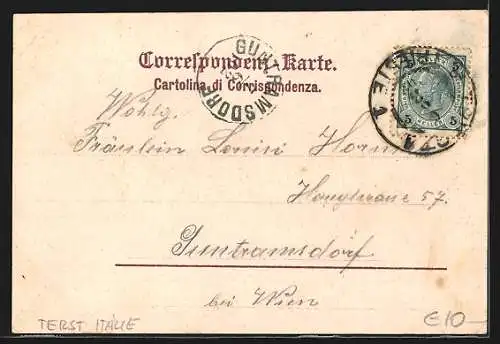 Correspondenz-Karte.
Cartolina di Corrispondenza.
GUNTRAMSDORF
TRIESTE
5 5
Wohlg.
Fräulein Louisi
Hauptstrasse 57.
Guntramsdorf
bei Wien
TERST ITÁLIE
€10-